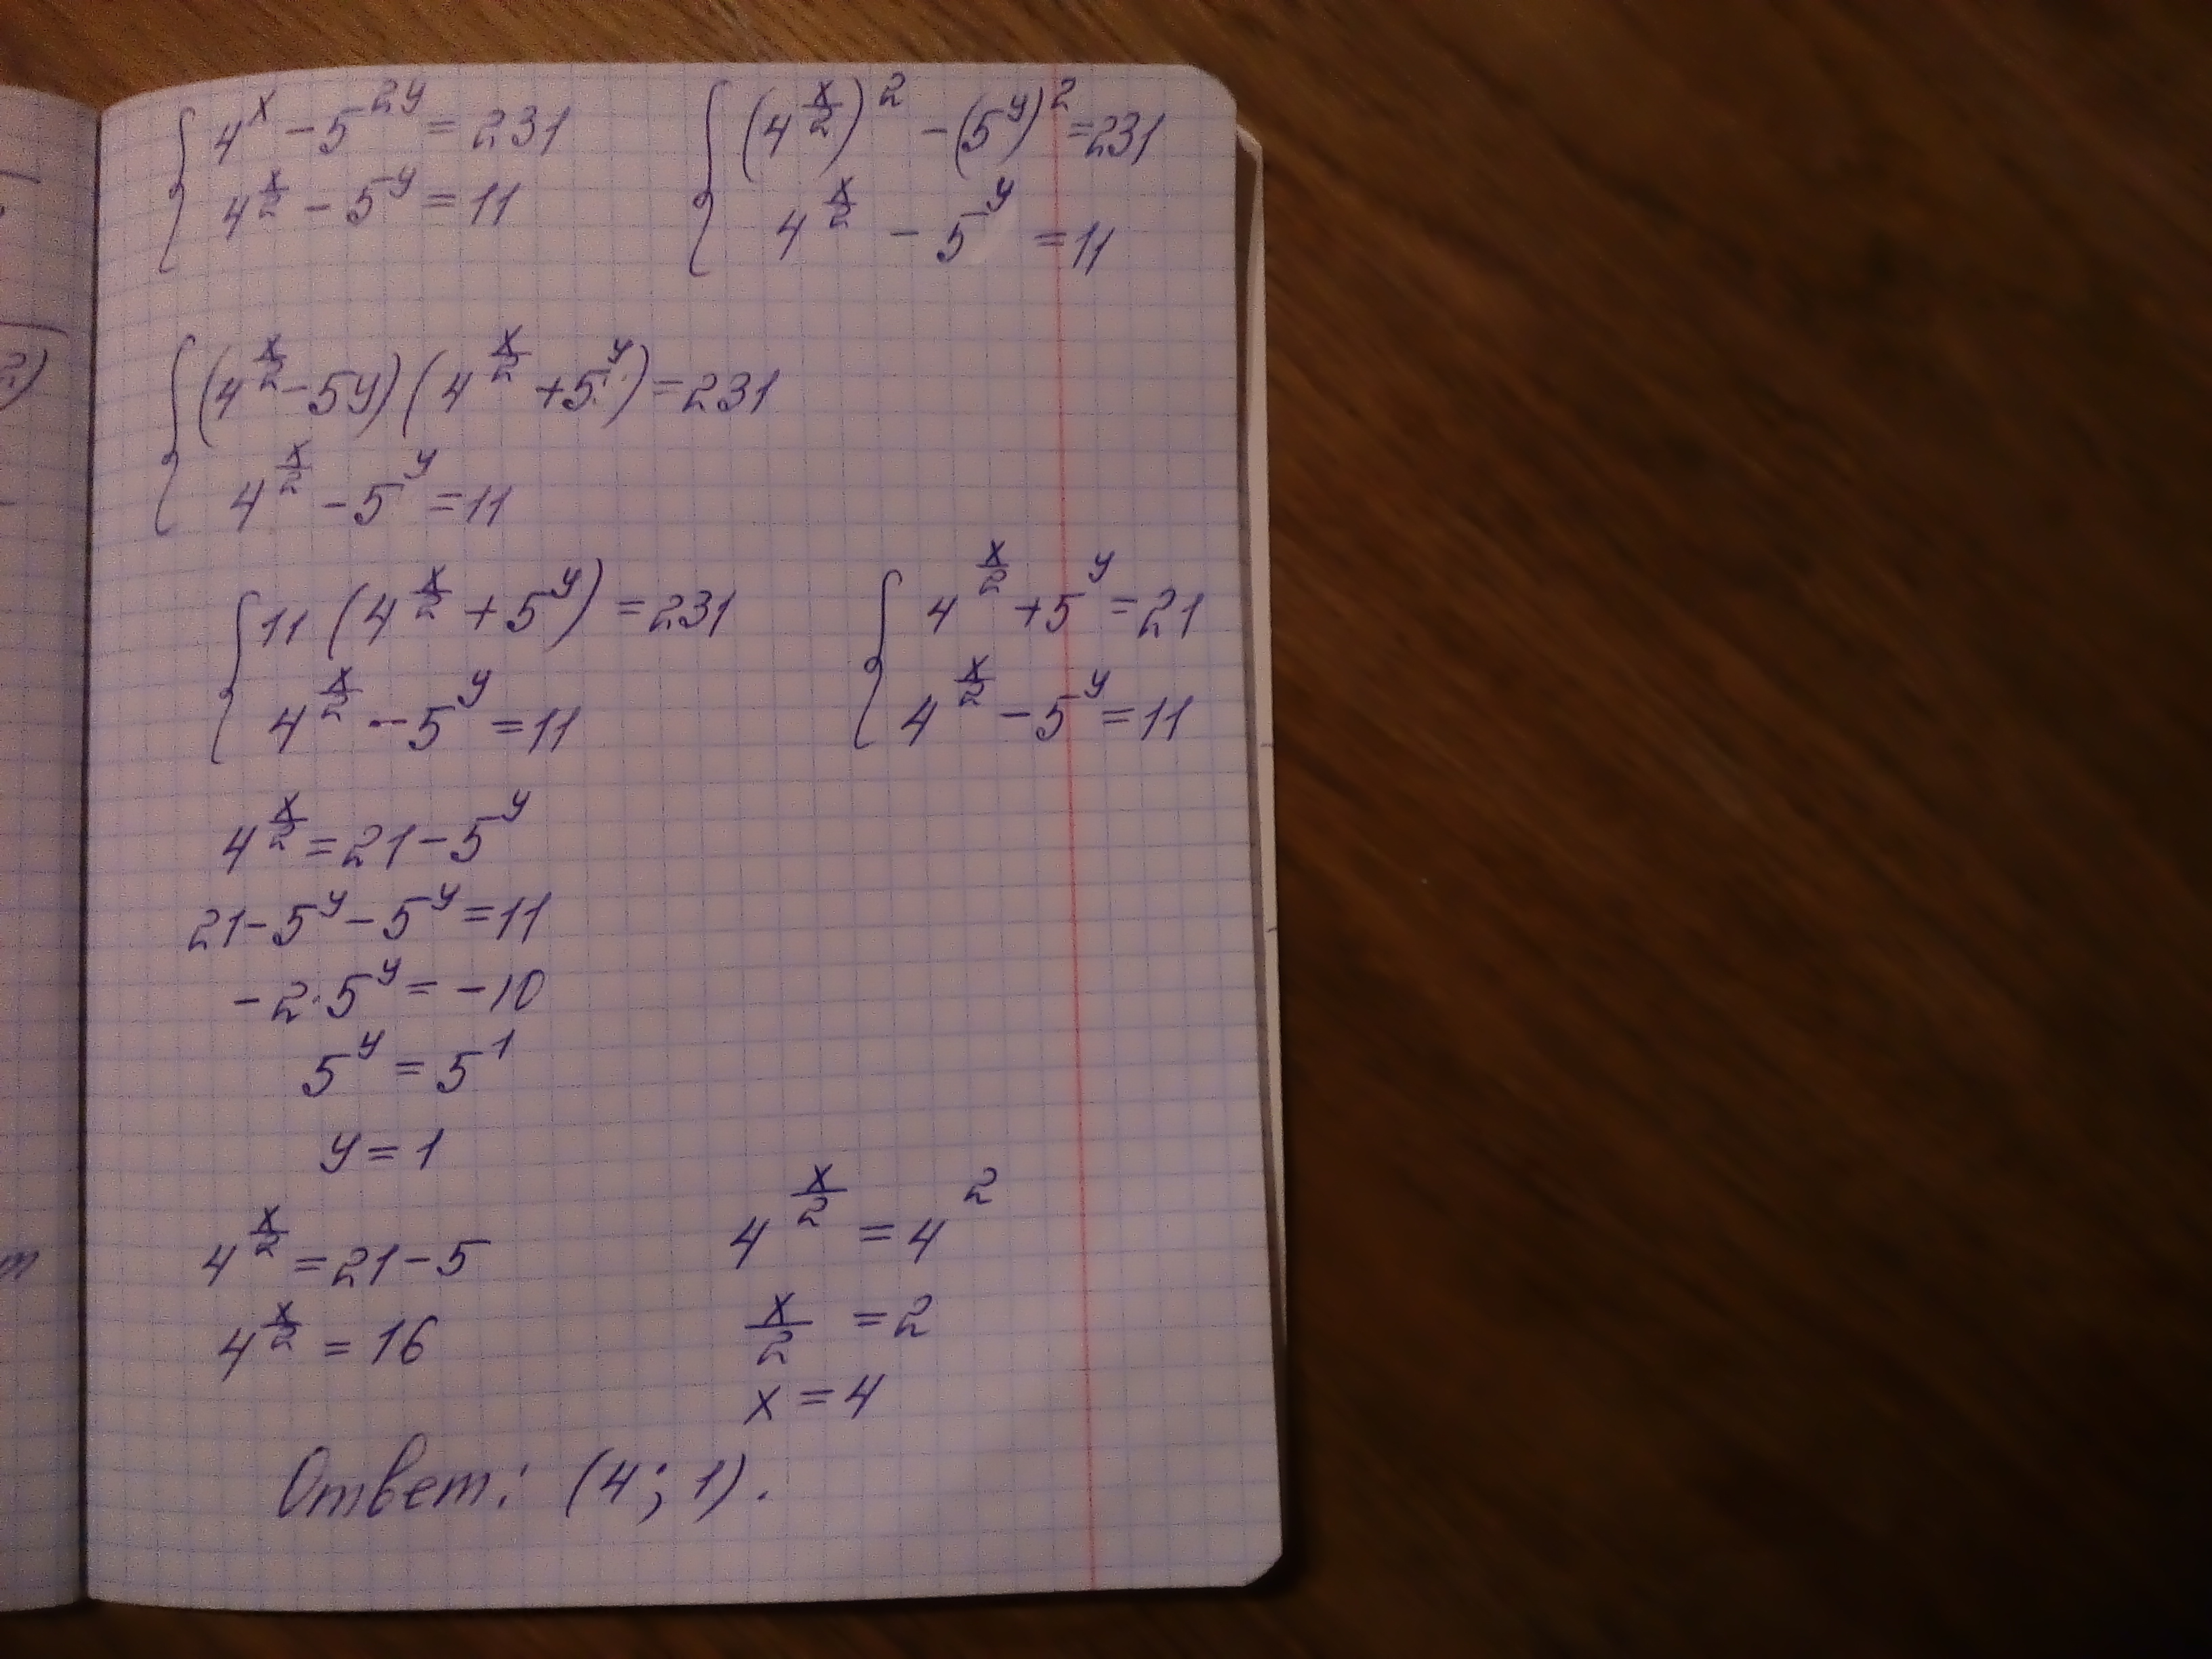 { 4^x - 5^{2y} = 231
4^{x/2} - 5^y = 11
{ (4^{x/2})^2 - (5^y)^2 = 231
4^{x/2} - 5^y = 11
{ (4^{x/2} - 5y)(4^{x/2} + 5^y) = 231
4^{x/2} - 5^y = 11
{ 11(4^{x/2} + 5^y) = 231
4^{x/2} - 5^y = 11
{ 4^{x/2} + 5^y = 21
4^{x/2} - 5^y = 11
4^{x/2} = 21 - 5^y
21 - 5^y - 5^y = 11
-2·5^y = -10
5^y = 5^1
y = 1
4^{x/2} = 21 - 5
4^{x/2} = 16
4^{x/2} = 4^2
x/2 = 2
x = 4
Ответ: (4; 1).
2)
т